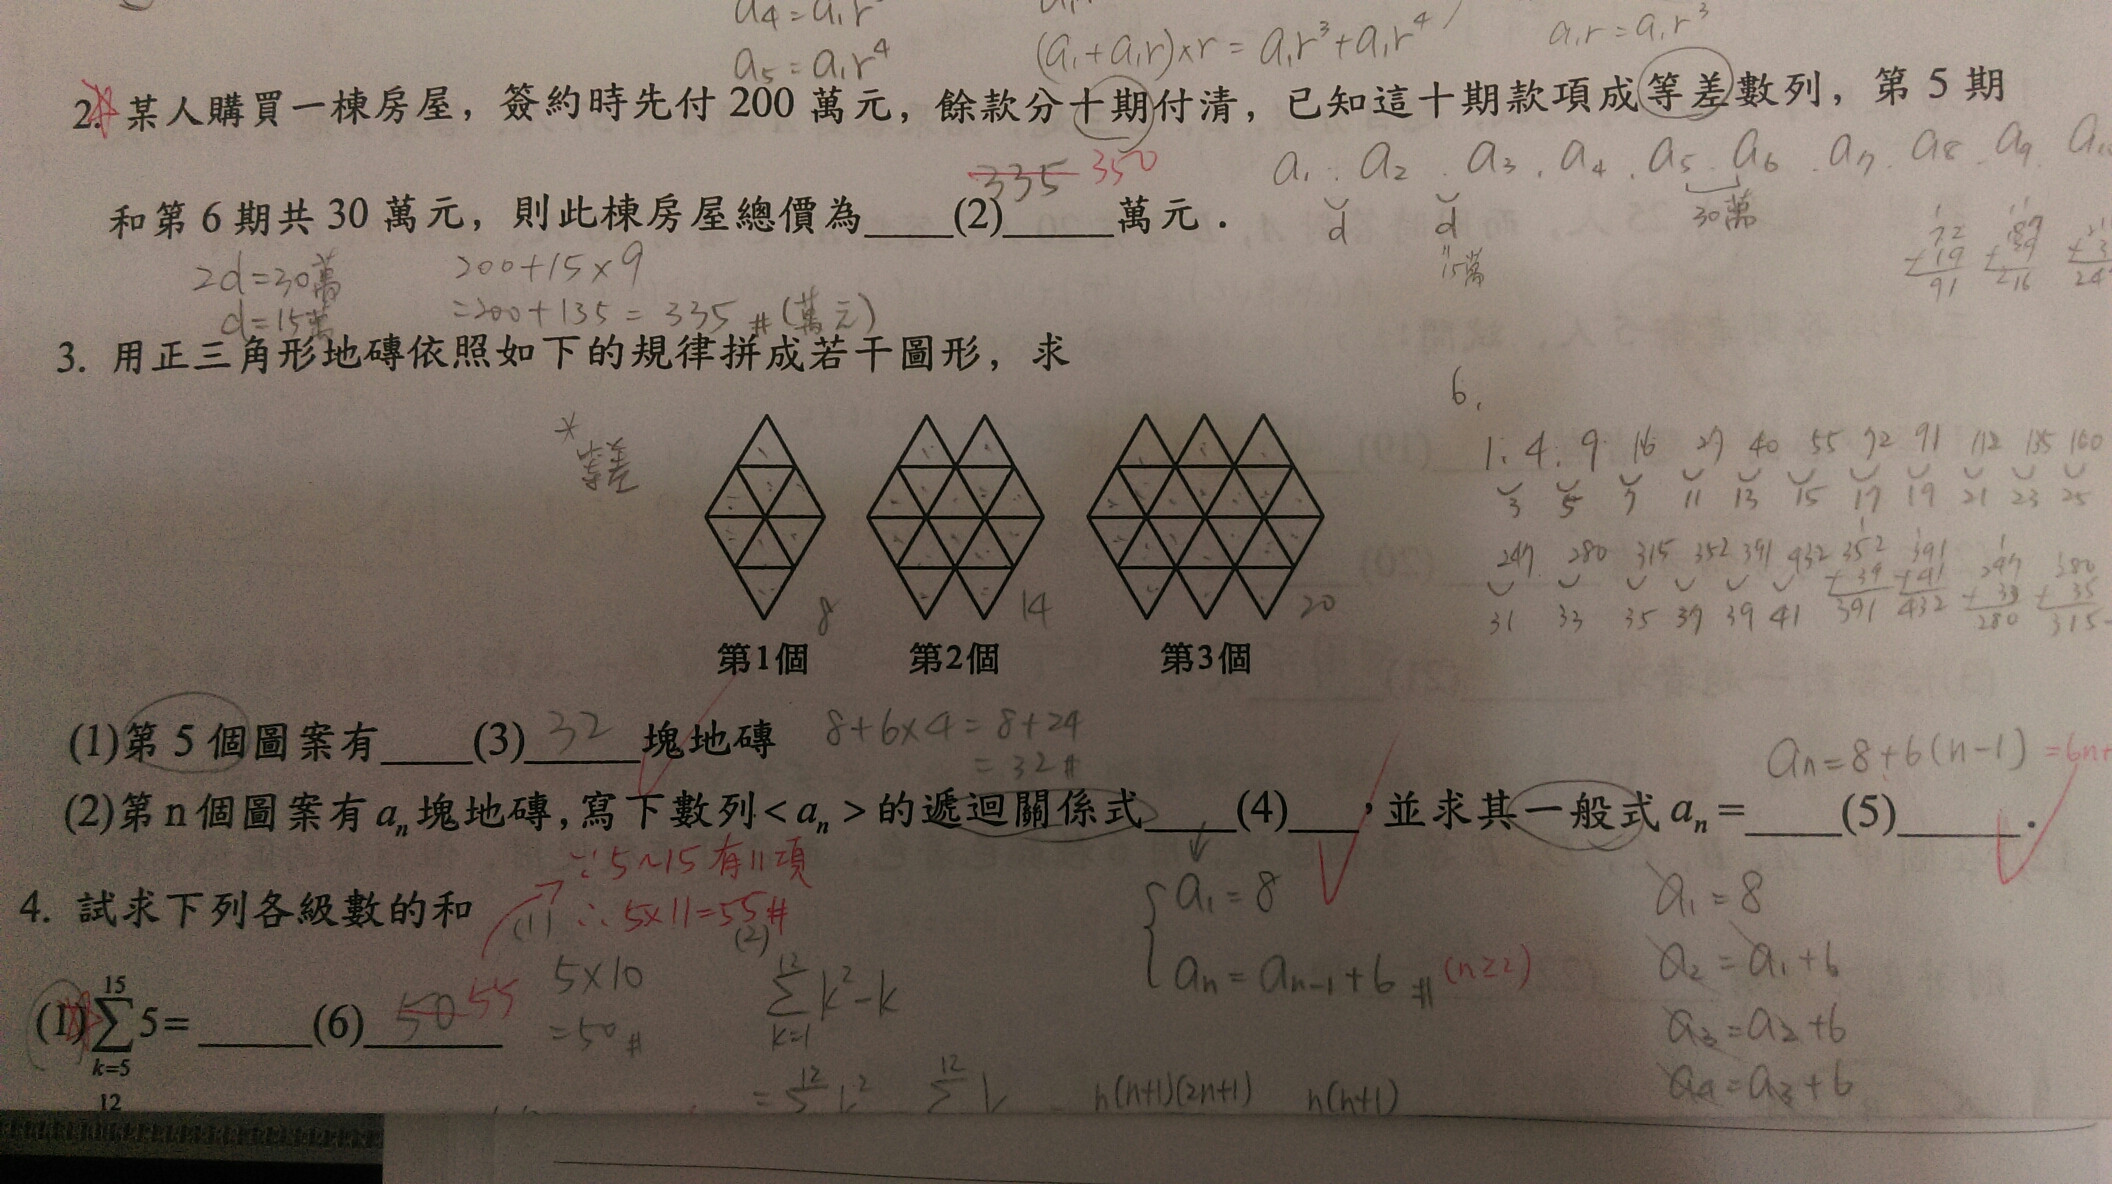 a₄=a₁r
a₅=a₁r⁴
(a₁+a₁r)×r=a₁r³+a₁r⁴
a₁r=a₁r³
2. 某人購買一棟房屋，簽約時先付 200 萬元，餘款分十期付清，已知這十期款項成等差數列，第 5 期
a₁. a₂. a₃. a₄. a₅. a₆. a₇. a₈. a₉
335 350
和第 6 期共 30 萬元，則此棟房屋總價為____(2)____萬元．
d d 30萬
15萬
72 +19 91
216
2d=30萬 200+15×9
d=15萬 =200+135=335 #(萬元)
3. 用正三角形地磚依照如下的規律拼成若干圖形，求
*等差
6.
1. 4. 9. 16 27 40 55 72 91 112 135 160
3 5 7 11 13 15 17 19 21 23 25
247 280 315 352 391 432
31 33 35 39 39 41
352 +39 391
391 +41 432
247 +33 280
280 +35 315
8 14 20
第1個 第2個 第3個
(1)第 5 個圖案有____(3) 32 塊地磚 8+6×4=8+24
=32#
aₙ=8+6(n-1) =6n+
(2)第 n 個圖案有 aₙ 塊地磚，寫下數列< aₙ >的遞迴關係式____(4)___，並求其一般式 aₙ =____(5)_____．
∵5~15有11項
4. 試求下列各級數的和 (1) ∴5×11=55#
a₁=8
aₙ=aₙ₋₁+6 # (n≥2)
a₁=8
a₂=a₁+6
a₃=a₂+6
a₄=a₃+6
(1) ∑_{k=5}^{15} 5= _____(6) 50 55
5×10
=50#
(2)
∑_{k=1}^{12} k²-k
12
=∑^{12} k² ∑^{12} k n(n+1)(2n+1) n(n+1)